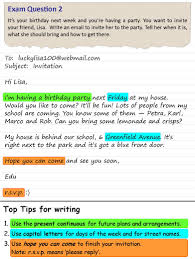 Exam Question 2
It's your birthday next week and you're having a party. You want to invite
your friend, Lisa. Write an email to invite her to the party. Tell her when it is,
what she should bring and how to get there.
To: luckylisa100@webmail.com
Subject: Invitation
Hi Lisa,
I'm having a birthday party next Friday at my house.
Would you like to come? It'll be fun! Lots of people from my
school are coming. You know some of them — Petra, Karl,
Marco and Rob. Can you bring some lemonade and crisps?
My house is behind our school, 6 Greenfield Avenue. It's
right next to the park and it's got a blue front door.
Hope you can come and see you soon,
Edu
r.s.v.p. :)
Top Tips for writing
1. Use the present continuous for future plans and arrangements.
2. Use capital letters for days of the week and for street names.
3. Use hope you can come to finish your invitation.
Note: r.s.v.p. means 'please reply'.